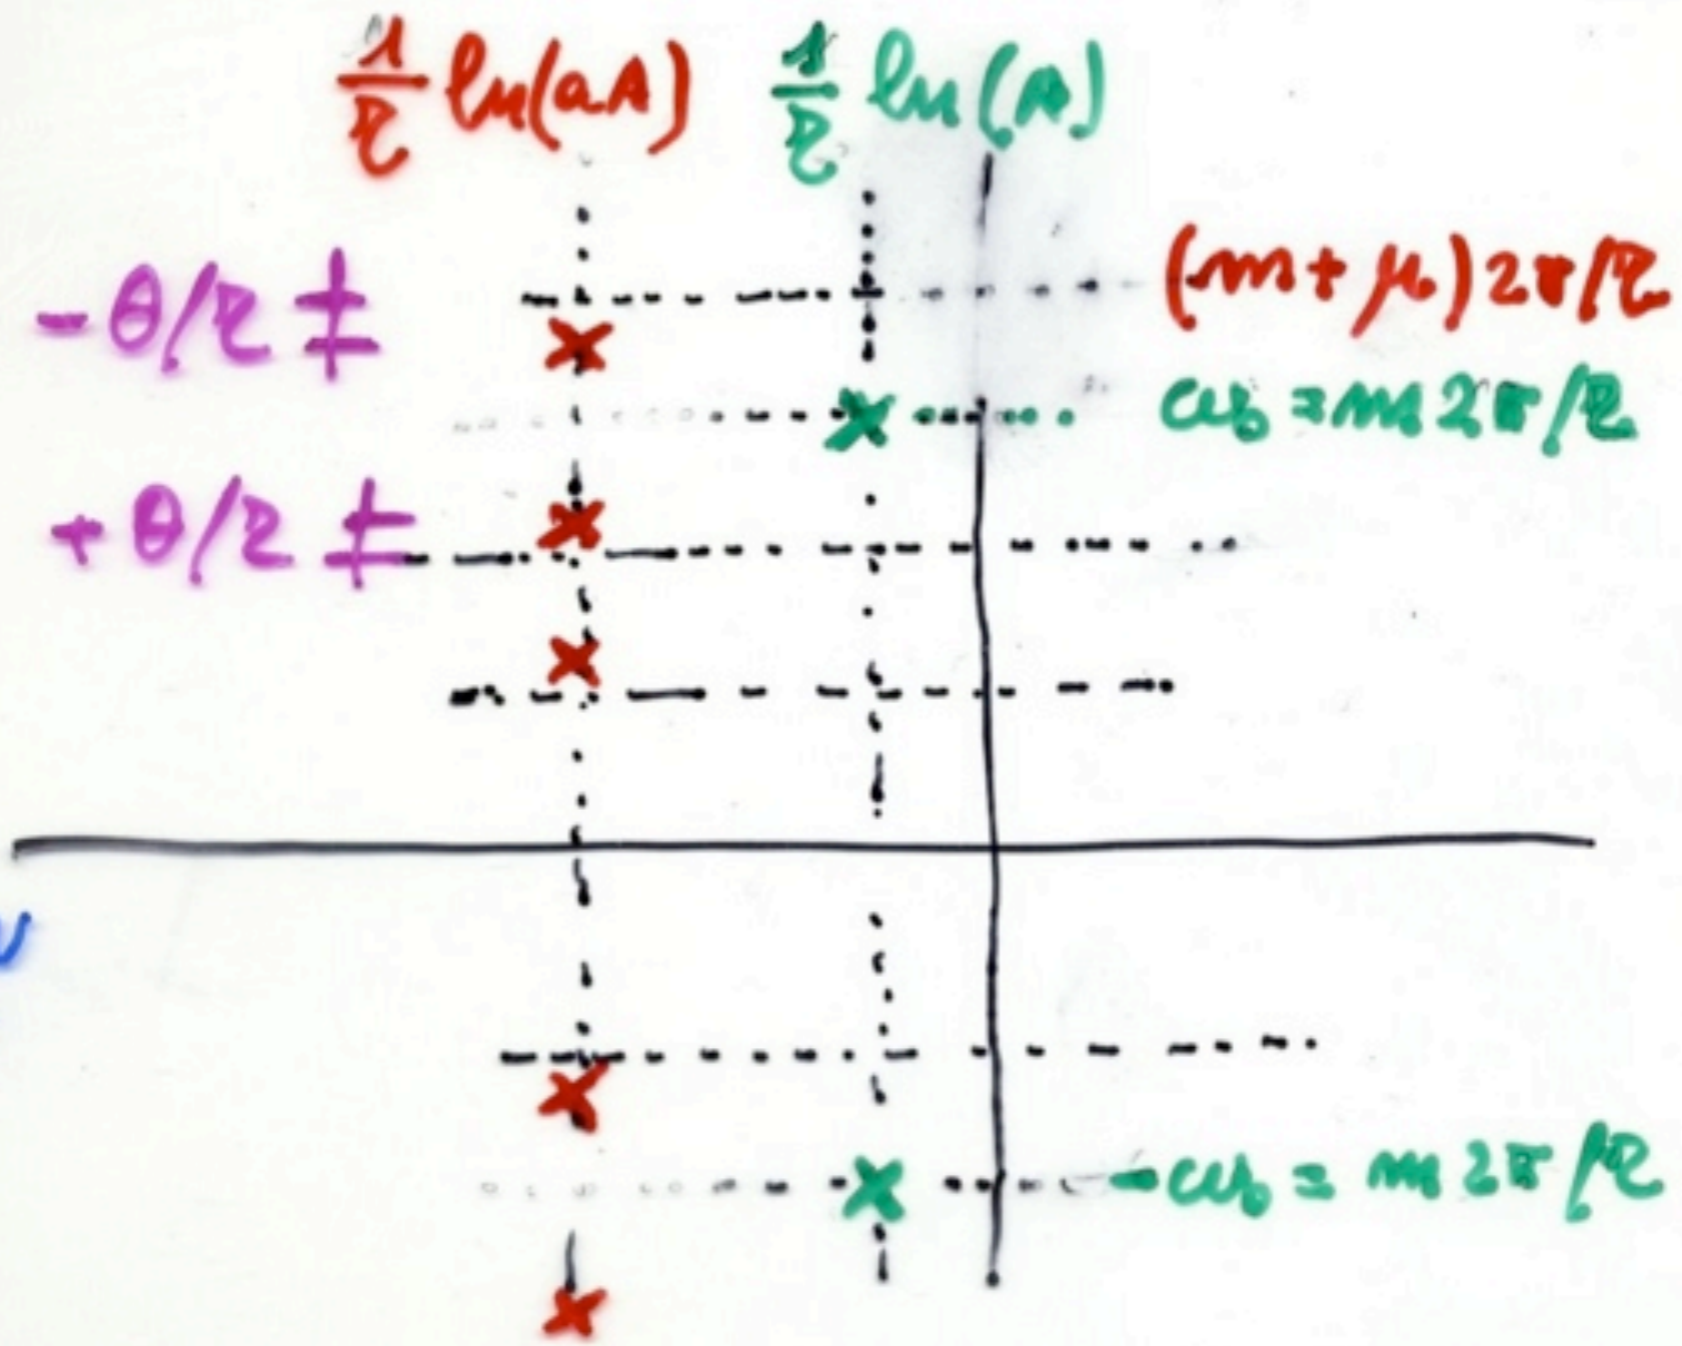 1/τ ln(aA) 1/τ ln(A)
-θ/τ ≠ (m+μ)2π/τ
ω₀ = m2π/τ
+θ/τ ≠
-ω₀ = m2π/τ